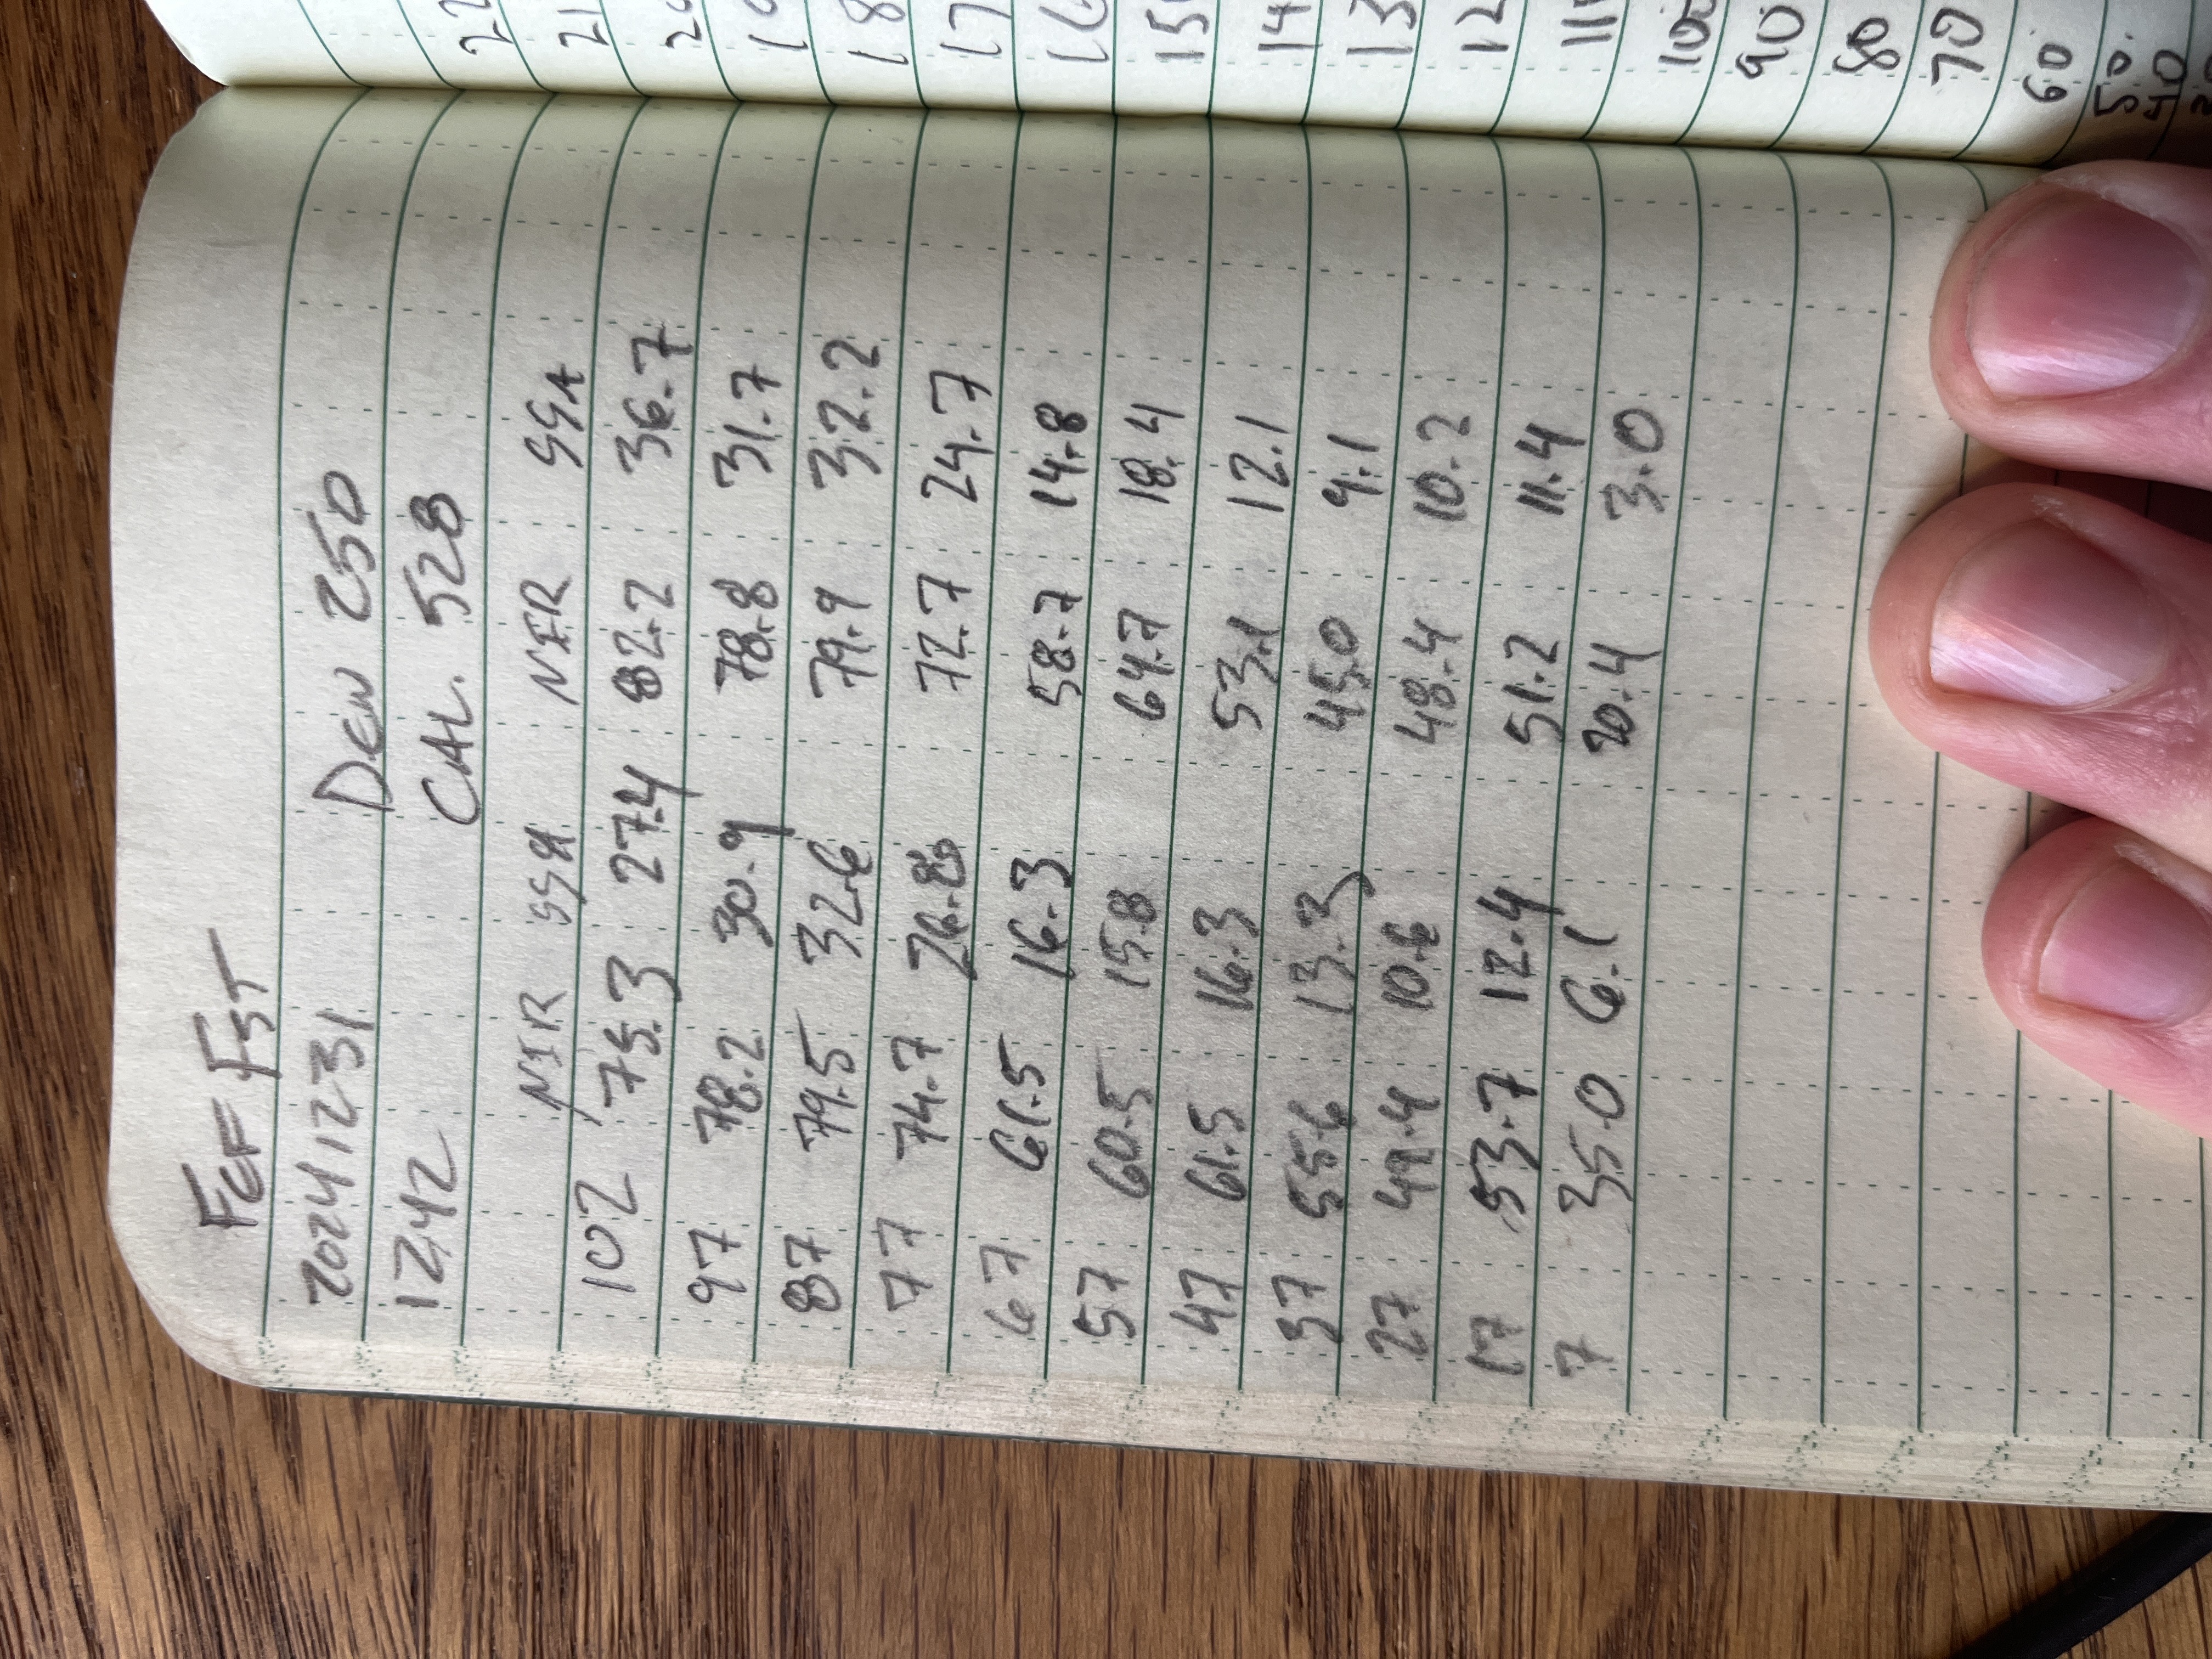 FEF FST
20241231 DEN 250
1242 CAL. 528
NIR SSA NIR SSA
102 75.3 27.4 82.2 36.7
97 78.2 30.9 78.8 31.7
87 79.5 32.6 79.9 32.2
77 74.7 26.8 72.7 24.7
67 61.5 16.3 58.7 14.8
57 60.5 15.8 64.7 18.4
47 61.5 16.3 53.1 12.1
37 55.6 13.3 45.0 9.1
27 49.4 10.6 48.4 10.2
17 53.7 12.4 51.2 11.4
7 35.0 6.1 20.4 3.0
90
80
70
60
50
40